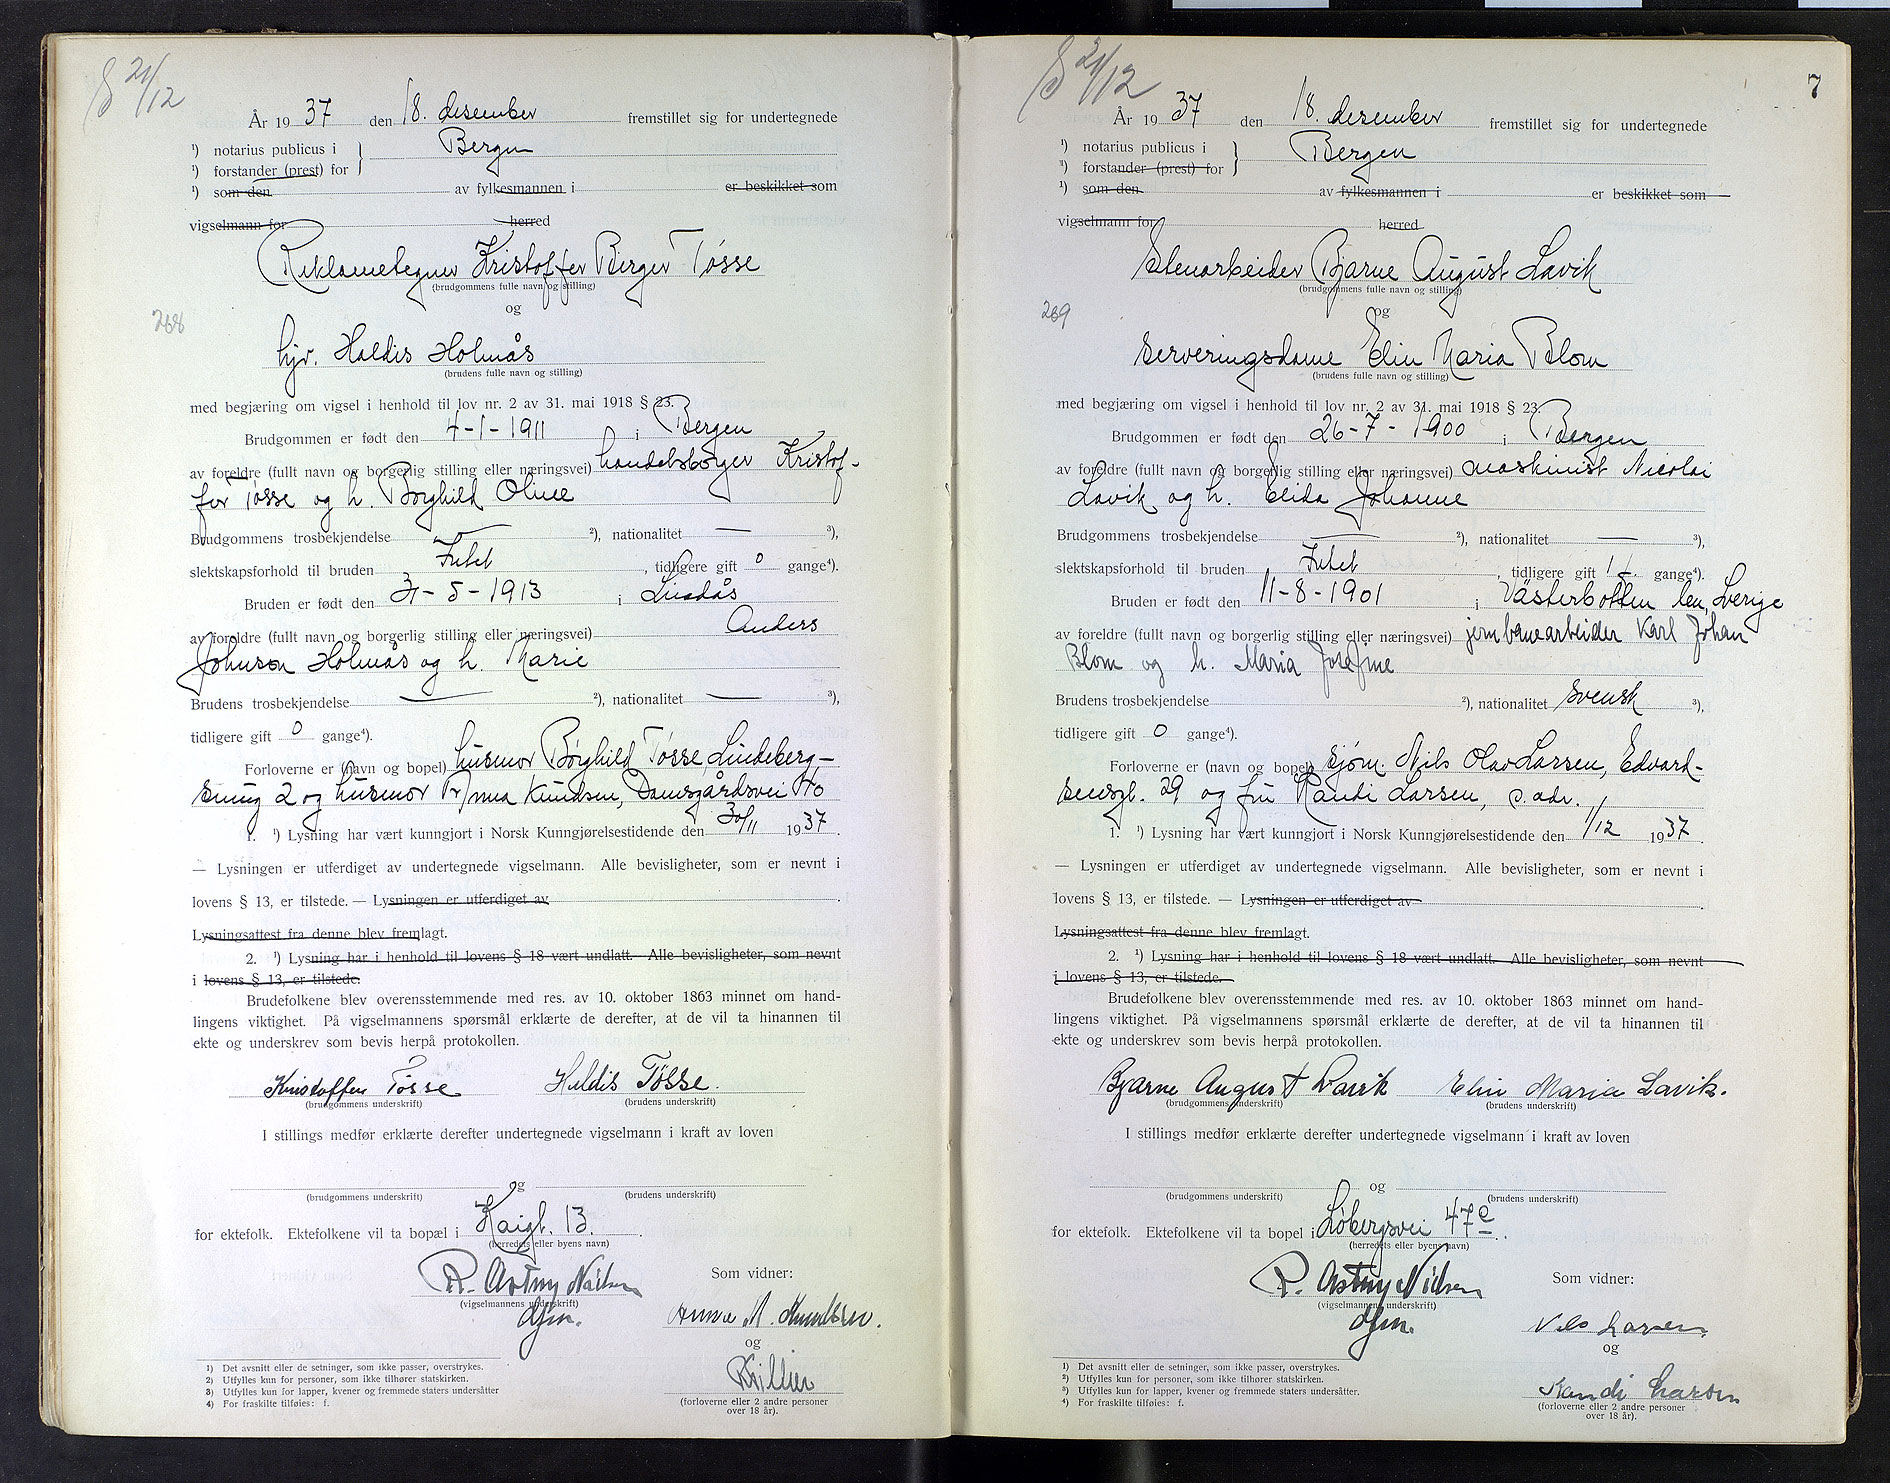 S 21/12
År 1937 den 18. desember fremstillet sig for undertegnede
¹) notarius publicus i } Bergen
¹) forstander (prest) for
¹) som den av fylkesmannen i er beskikket som
vigselmann for herred
Reklametegner Kristoffer Birger Tøsse
(brudgommens fulle navn og stilling)
og
268
hjv. Haldis Holmås
(brudens fulle navn og stilling)
med begjæring om vigsel i henhold til lov nr. 2 av 31. mai 1918 § 23.
Brudgommen er født den 4-1-1911 i Bergen
av foreldre (fullt navn og borgerlig stilling eller næringsvei) handelsborger Kristof-
fer Tøsse og h. Borghild Oline
Brudgommens trosbekjendelse — ²), nationalitet — ³),
slektskapsforhold til bruden Intet, tidligere gift 0 gange⁴).
Bruden er født den 31-5-1913 i Lindås
av foreldre (fullt navn og borgerlig stilling eller næringsvei) Anders
Johnson Holmås og h. Marie
Brudens trosbekjendelse — ²), nationalitet — ³),
tidligere gift 0 gange⁴).
Forloverne er (navn og bopel) husmor Borghild Tøsse, Lindeberg-
smug 2 og husmor Anna Knudsen, Damsgårdsvei
1. ¹) Lysning har vært kunngjort i Norsk Kunngjørelsestidende den 30/11 1937.
— Lysningen er utferdiget av undertegnede vigselmann. Alle bevisligheter, som er nevnt i
lovens § 13, er tilstede. — Lysningen er utferdiget av .
Lysningsattest fra denne blev fremlagt.
2. ¹) Lysning har i henhold til lovens § 18 vært undlatt. Alle bevisligheter, som nevnt
i lovens § 13, er tilstede.
Brudefolkene blev overensstemmende med res. av 10. oktober 1863 minnet om hand-
lingens viktighet. På vigselmannens spørsmål erklærte de derefter, at de vil ta hinannen til
ekte og underskrev som bevis herpå protokollen.
Kristoffer Tøsse Haldis Tøsse.
(brudgommens underskrift) (brudens underskrift)
I stillings medfør erklærte derefter undertegnede vigselmann i kraft av loven
og
(brudgommens underskrift) (brudens underskrift)
for ektefolk. Ektefolkene vil ta bopæl i Kaigt. 13.
(herredets eller byens navn)
R. Astrup Nielsen Som vidner:
(vigselmannens underskrift)
dfm. Anna M. Knudsen.
og
(forloverne eller 2 andre personer
over 18 år).
¹) Det avsnitt eller de setninger, som ikke passer, overstrykes.
²) Utfylles kun for personer, som ikke tilhører statskirken.
³) Utfylles kun for lapper, kvener og fremmede staters undersåtter
⁴) For fraskilte tilføies: f.
S 21/12
7
År 1937 den 18. desember fremstillet sig for undertegnede
¹) notarius publicus i } Bergen
¹) forstander (prest) for
¹) som den av fylkesmannen i er beskikket som
vigselmann for herred
Stenarbeider Bjarne August Lavik
(brudgommens fulle navn og stilling)
og
269
Serveringsdame Elin Maria Blom
(brudens fulle navn og stilling)
med begjæring om vigsel i henhold til lov nr. 2 av 31. mai 1918 § 23.
Brudgommen er født den 26-7-1900 i Bergen
av foreldre (fullt navn og borgerlig stilling eller næringsvei) maskinist Nicolai
Lavik og h. Elida Johanne
Brudgommens trosbekjendelse — ²), nationalitet — ³),
slektskapsforhold til bruden Intet, tidligere gift 1 f. gange⁴).
Bruden er født den 11-8-1901 i Västerbotten len, Sverige
av foreldre (fullt navn og borgerlig stilling eller næringsvei) jernbanearbeider Karl Johan
Blom og h. Maria Josefine
Brudens trosbekjendelse ²), nationalitet svensk ³),
tidligere gift 0 gange⁴).
Forloverne er (navn og bopel) sjøm. Nils Olav Larsen, Edvard-
sensgt. 29 og fru Randi Larsen, s. adr.
1. ¹) Lysning har vært kunngjort i Norsk Kunngjørelsestidende den 1/12 1937.
— Lysningen er utferdiget av undertegnede vigselmann. Alle bevisligheter, som er nevnt i
lovens § 13, er tilstede. — Lysningen er utferdiget av .
Lysningsattest fra denne blev fremlagt.
2. ¹) Lysning har i henhold til lovens § 18 vært undlatt. Alle bevisligheter, som nevnt
i lovens § 13, er tilstede.
Brudefolkene blev overensstemmende med res. av 10. oktober 1863 minnet om hand-
lingens viktighet. På vigselmannens spørsmål erklærte de derefter, at de vil ta hinannen til
ekte og underskrev som bevis herpå protokollen.
Bjarne August Lavik Elin Maria Lavik.
(brudgommens underskrift) (brudens underskrift)
I stillings medfør erklærte derefter undertegnede vigselmann i kraft av loven
og
(brudgommens underskrift) (brudens underskrift)
for ektefolk. Ektefolkene vil ta bopel i Løbergsvei 47c.
(herredets eller byens navn)
R. Astrup Nielsen Som vidner:
(vigselmannens underskrift)
dfm. Nils Larsen
og
Randi Larsen
(forloverne eller 2 andre personer
over 18 år).
¹) Det avsnitt eller de setninger, som ikke passer, overstrykes.
²) Utfylles kun for personer, som ikke tilhører statskirken.
³) Utfylles kun for lapper, kvener og fremmede staters undersåtter.
⁴) For fraskilte tilføies: f.